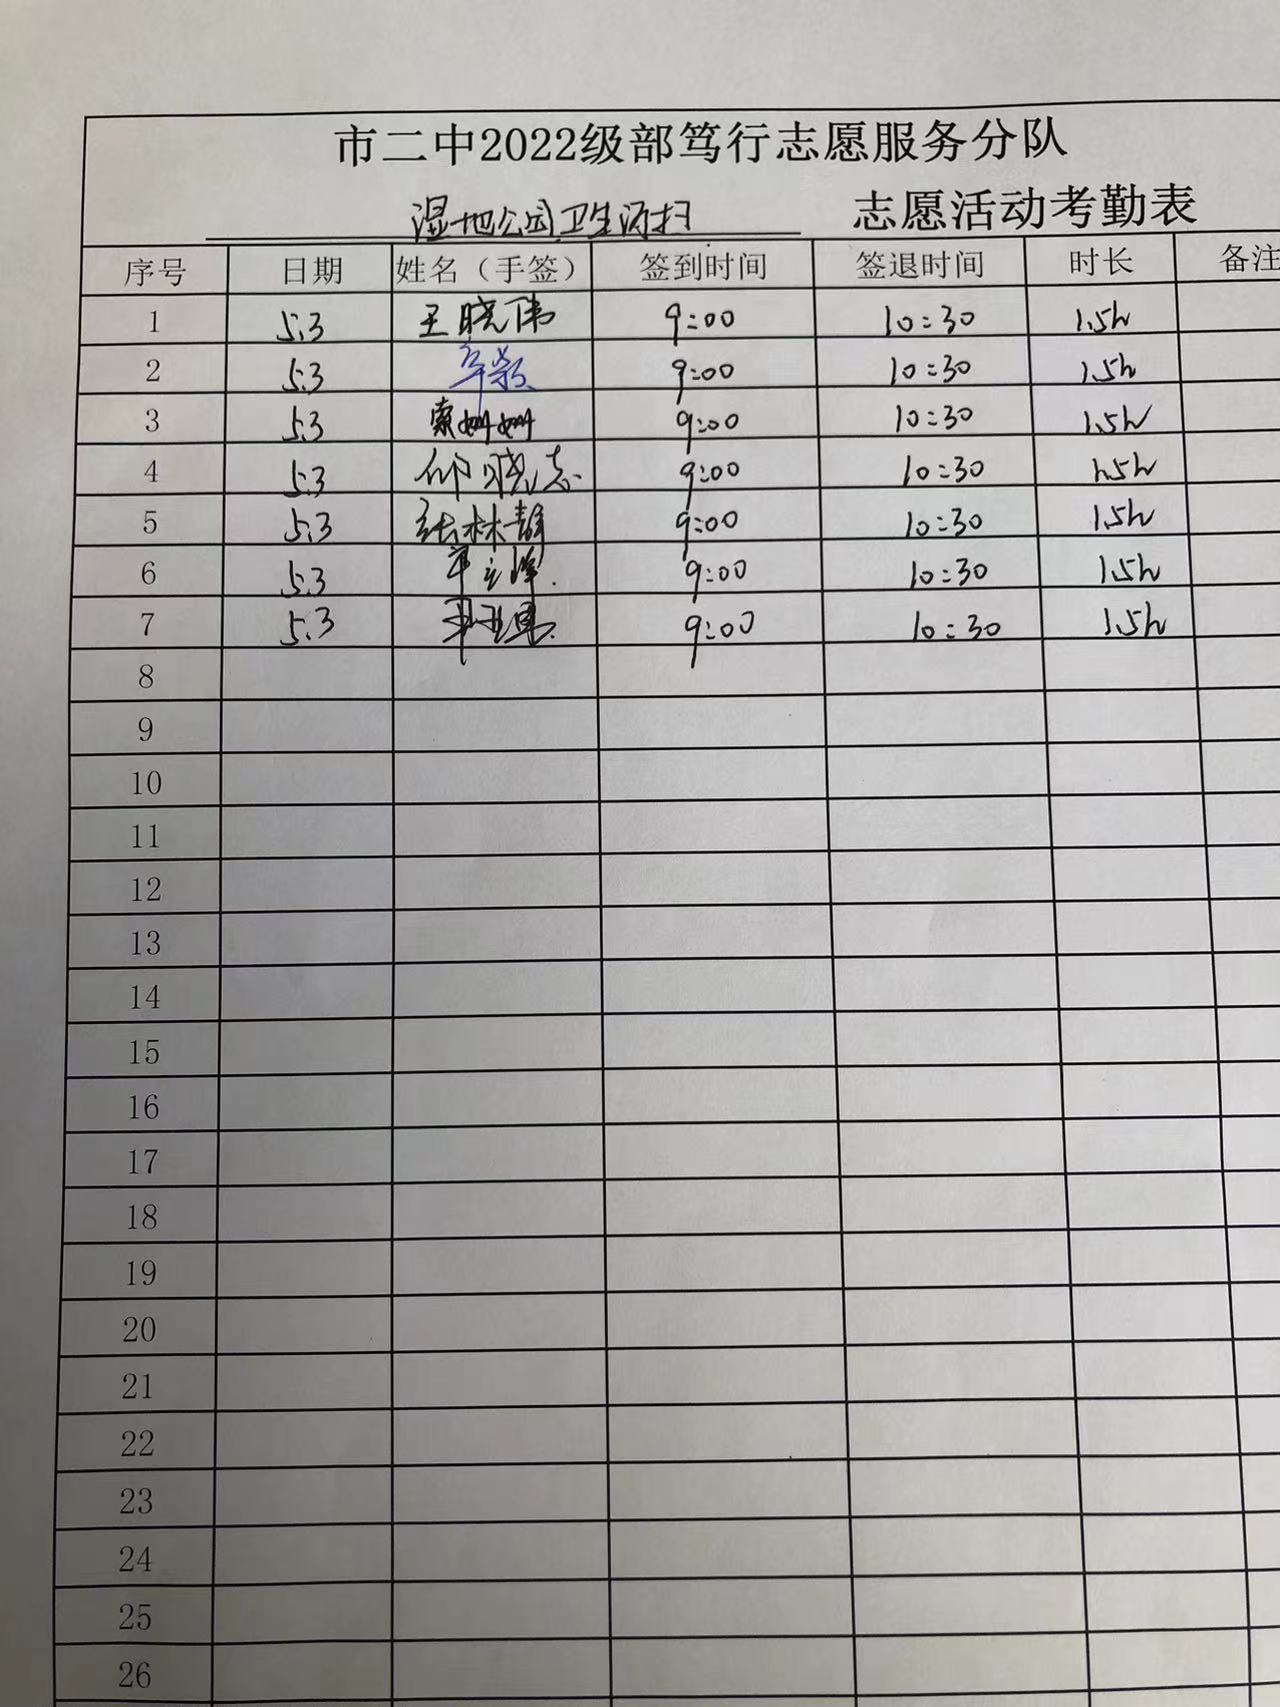 市二中2022级部笃行志愿服务分队
湿地公园卫生清扫 志愿活动考勤表
序号 日期 姓名（手签） 签到时间 签退时间 时长 备注
1 5.3 王晓伟 9:00 10:30 1.5h
2 5.3 9:00 10:30 1.5h
3 5.3 索姗姗 9:00 10:30 1.5h
4 5.3 邝晓志 9:00 10:30 1.5h
5 5.3 张林静 9:00 10:30 1.5h
6 5.3 9:00 10:30 1.5h
7 5.3 9:00 10:30 1.5h
8
9
10
11
12
13
14
15
16
17
18
19
20
21
22
23
24
25
26